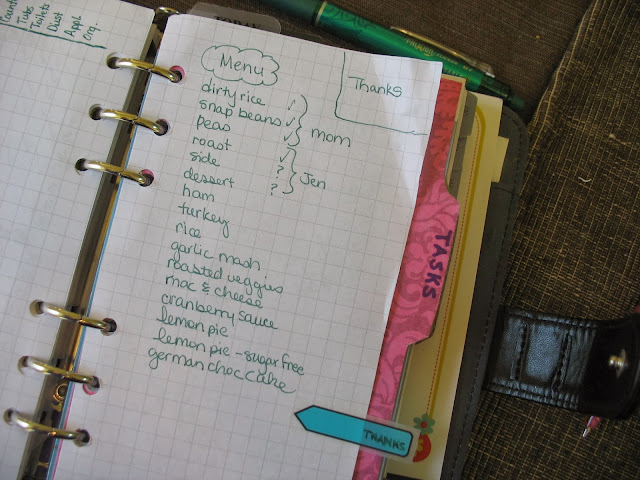 Tubs
Toilets
Dust
Appl
org.
Menu
Thanks
dirty rice
snap beans ✓
peas ✓
mom
roast ✓
side ?
dessert ?
Jen
ham
turkey
rice
garlic mash
roasted veggies
mac & cheese
cranberry sauce
lemon pie
lemon pie - sugar free
german choc cake
TASKS
THANKS